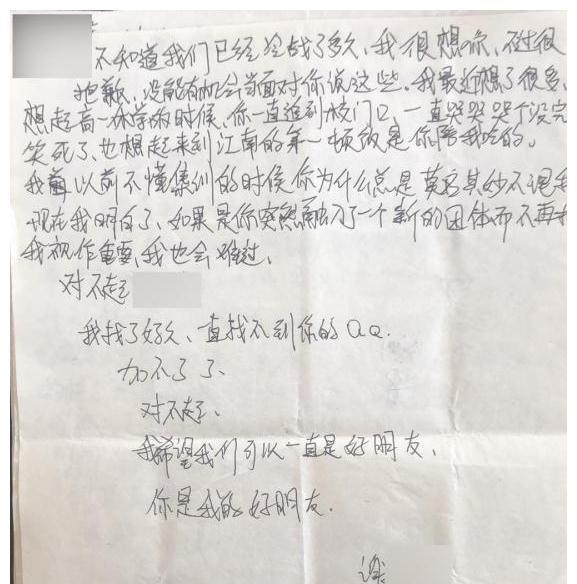 不知道我们已经冷战了多久,我很想你,不过很
抱歉、没能有机会当面对你说这些.我最近想了很多、
想起高一休学的时候,你一直追到校门口、一直哭哭哭个没完
笑死了、也想起来到江南的第一顿饭是你陪我吃的。
我以前不懂集训的时候你为什么总是莫名其妙不理我
现在我明白了、如果是你突然融入了一个新的团体而不再把
我视作重要,我也会难过、
对不起
我找了好久、直找不到你的QQ.
加不了了、
对不起、
我希望我们可以一直是好朋友、
你是我的好朋友.